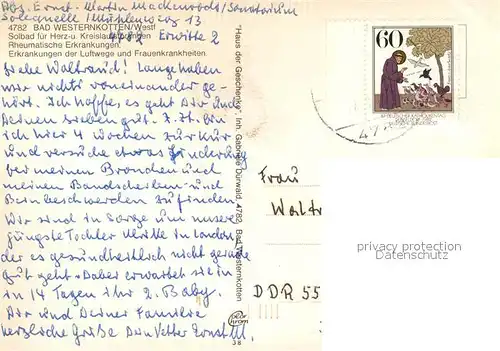 Abs. Ernst-Martin Sanatorium
Solequelle / Mühlenweg 13
4782 BAD WESTERNKOTTEN/Westf.
4782 Erwitte 2
Solbad für Herz-u. Kreislaufstörungen
Rheumatische Erkrankungen
Erkrankungen der Luftwege und Frauenkrankheiten.
Liebe Waltraud! Lange haben
wir nichts voneinander ge-
hört. Ich hoffe, es geht Dir und
Deinen Lieben gut. Z. Zt. bin
ich hier 4 Wochen zur Kur
und versuche etwas Linderung
bei meinen Bronchien und
meinen Bandscheiben- und
Beinbeschwerden zu finden.
Wir sind in Sorge um unsere
jüngste Tochter in London,
der es gesundheitlich nicht gerade
gut geht. Dabei erwartet sie in
in 14 Tagen ihr 2. Baby.
Dir und Deiner Familie
herzliche Grüße Dein Vetter Ernst M.
"Haus der Geschenke", Inh. Gabriele Dürwald, 4782 Bad Westernkotten
60
Frau
Waltr
DDR 55
privacy protection
38